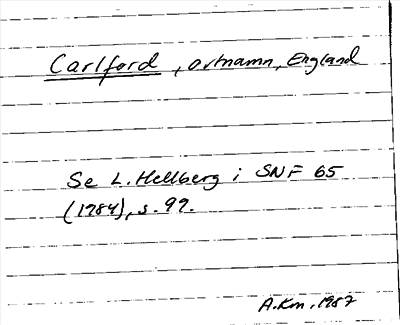 Carlford, ortnamn, England
Se L. Hellberg i SNF 65
(1984), s. 99.
A.Km, 1987